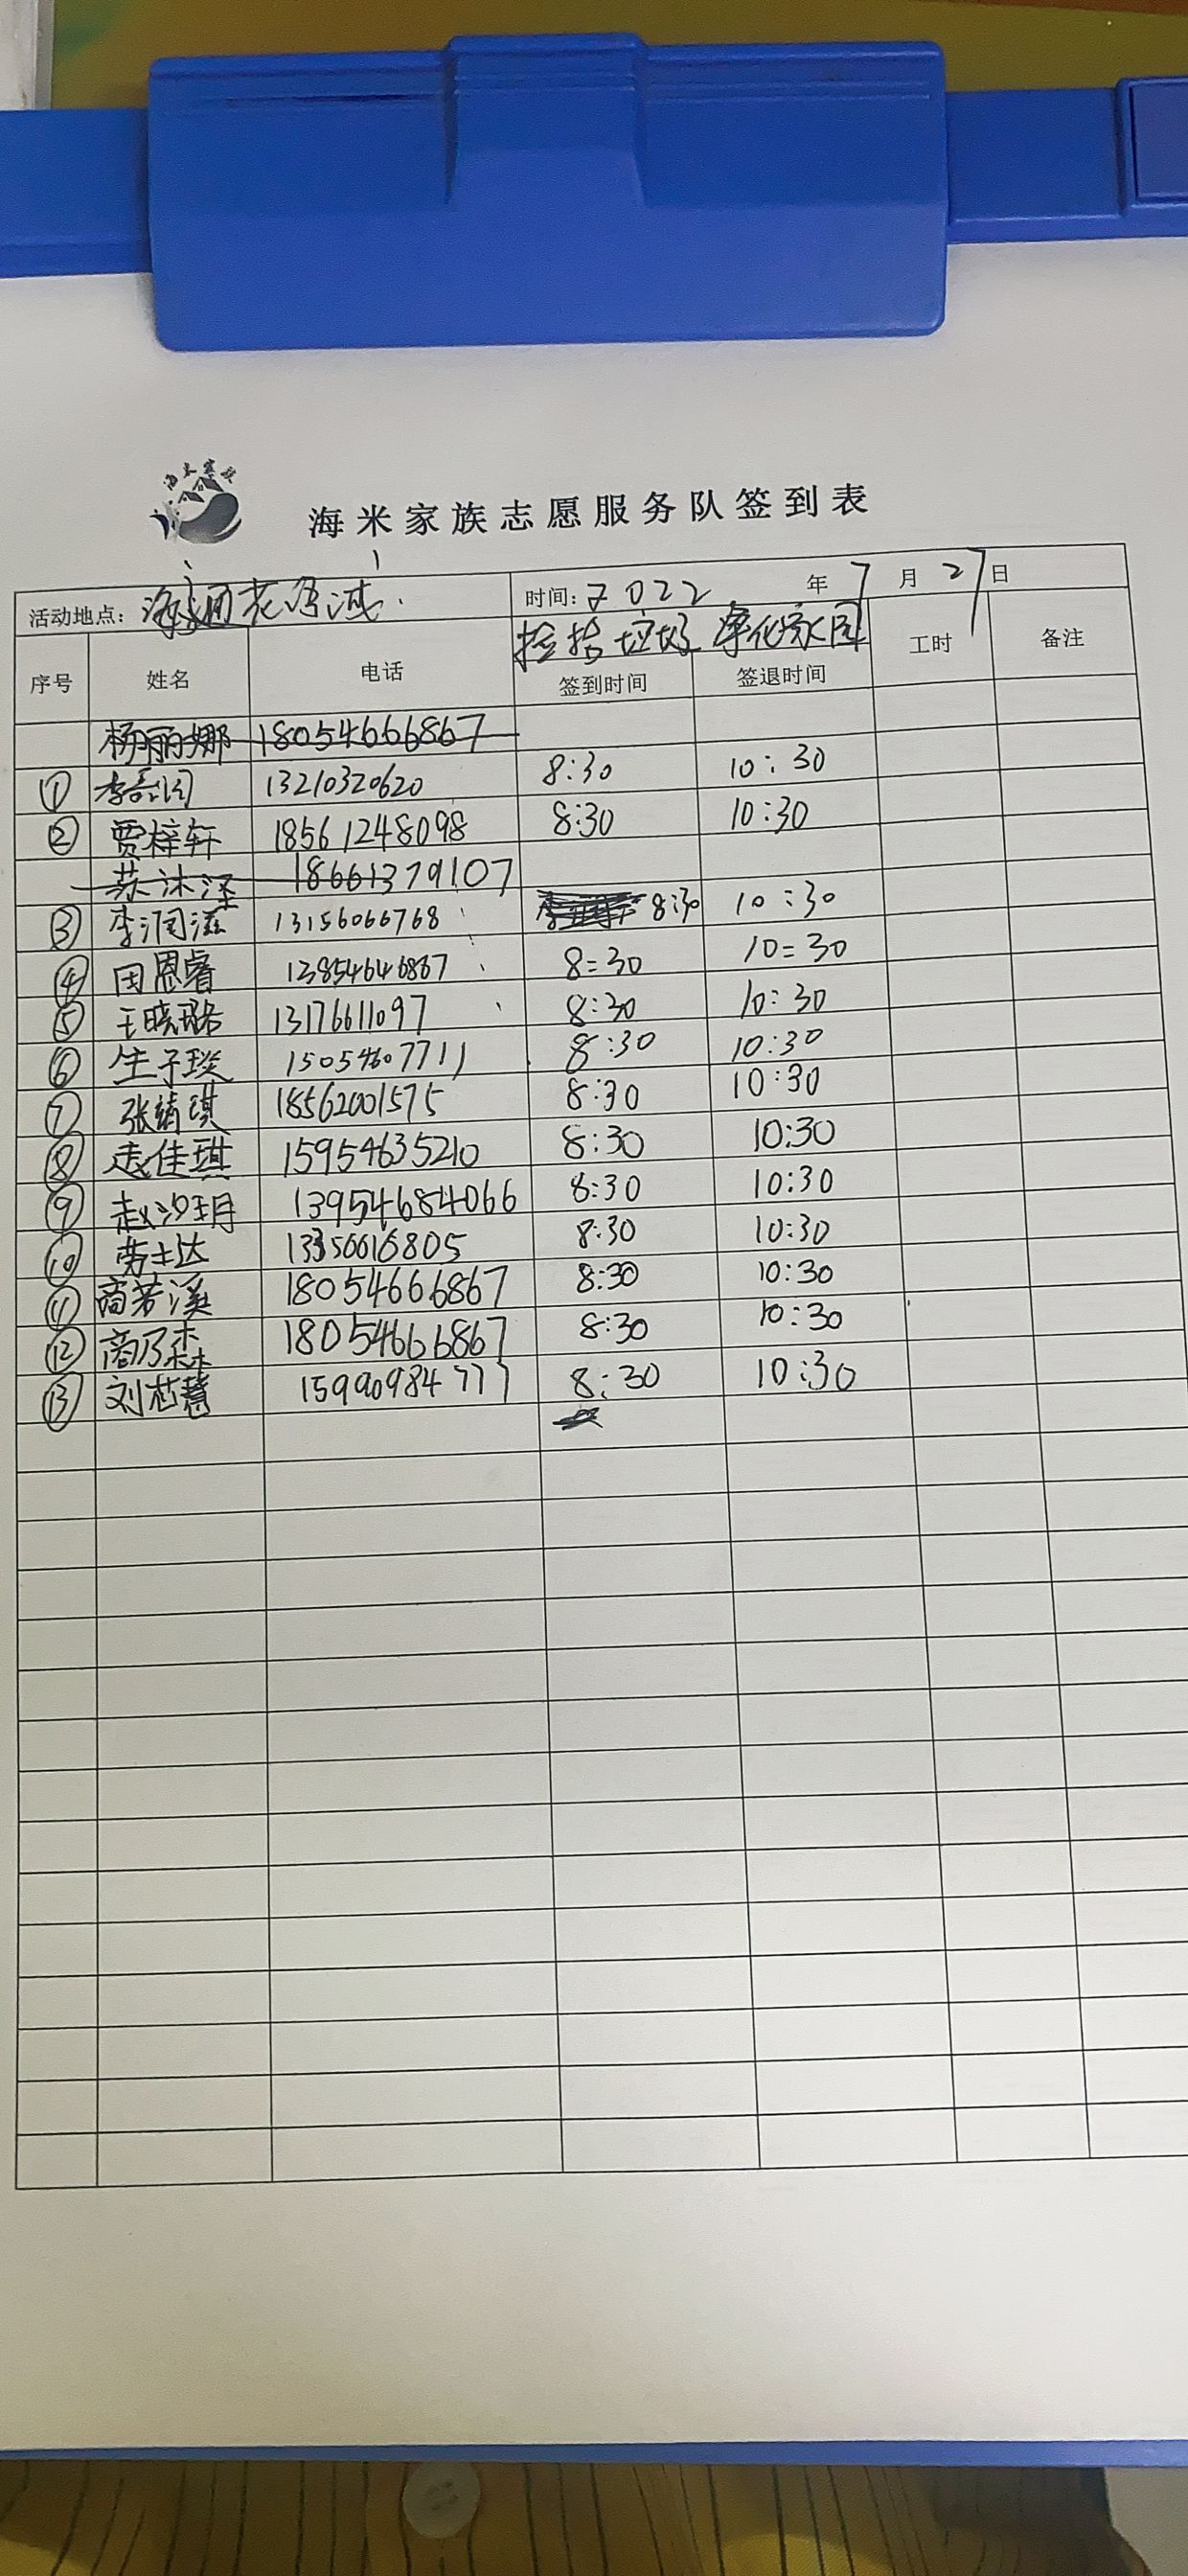 海米家族
海米家族志愿服务队签到表
活动地点: 海通花 时间: 2022 年 7 月 27 日
捡拾垃圾 净化家园
序号 姓名 电话 签到时间 签退时间 工时 备注
杨丽娜 18054666867
① 李 13210320620 8:30 10:30
② 贾梓轩 18561248098 8:30 10:30
苏沐泽 18661379107
③ 李润滋 13156066768 8:30 10:30
④ 田恩睿 13854646867 8=30 10=30
⑤ 王晓璐 13176611097 8:30 10:30
⑥ 生子琰 15054607711 8:30 10:30
⑦ 张靖琪 18562001575 8:30 10:30
⑧ 袁佳琪 15954635210 8:30 10:30
⑨ 赵汐玥 13954684066 8:30 10:30
⑩ 劳士达 13356616805 8:30 10:30
⑪ 商若溪 18054666867 8:30 10:30
⑫ 商乃森 18054666867 8:30 10:30
⑬ 刘芯慧 15990984777 8:30 10:30